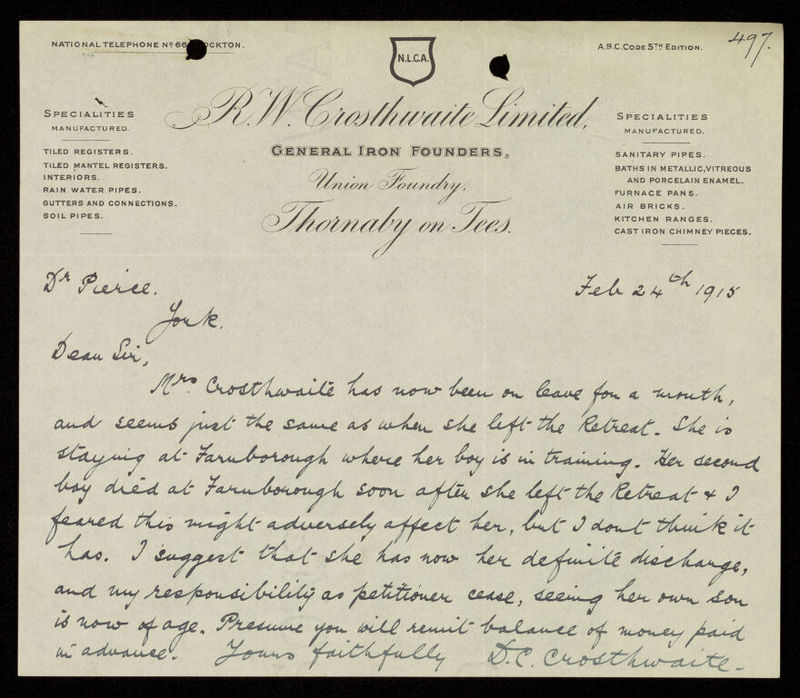 NATIONAL TELEPHONE Nº 66 OCKTON.
A.B.C. CODE 5TH EDITION.
497.
N.L.C.A.
R.W. Crosthwaite Limited,
GENERAL IRON FOUNDERS,
Union Foundry,
Thornaby on Tees.
SPECIALITIES
MANUFACTURED.
TILED REGISTERS.
TILED MANTEL REGISTERS.
INTERIORS.
RAIN WATER PIPES.
GUTTERS AND CONNECTIONS.
SOIL PIPES.
SPECIALITIES
MANUFACTURED.
SANITARY PIPES.
BATHS IN METALLIC, VITREOUS
AND PORCELAIN ENAMEL.
FURNACE PANS.
AIR BRICKS.
KITCHEN RANGES.
CAST IRON CHIMNEY PIECES.
Feb 24th 1915
Dr Pierce.
York.
Dear Sir,
Mrs. Crosthwaite has now been on leave for a month,
and seems just the same as when she left the Retreat. She is
staying at Farnborough where her boy is in training. Her second
boy died at Farnborough soon after she left the Retreat & I
feared this might adversely affect her, but I dont think it
has. I suggest that she has now her definite discharge,
and my responsibility as petitioner cease, seeing her own son
is now of age. Presume you will remit balance of money paid
in advance. Yours faithfully D.C. Crosthwaite.